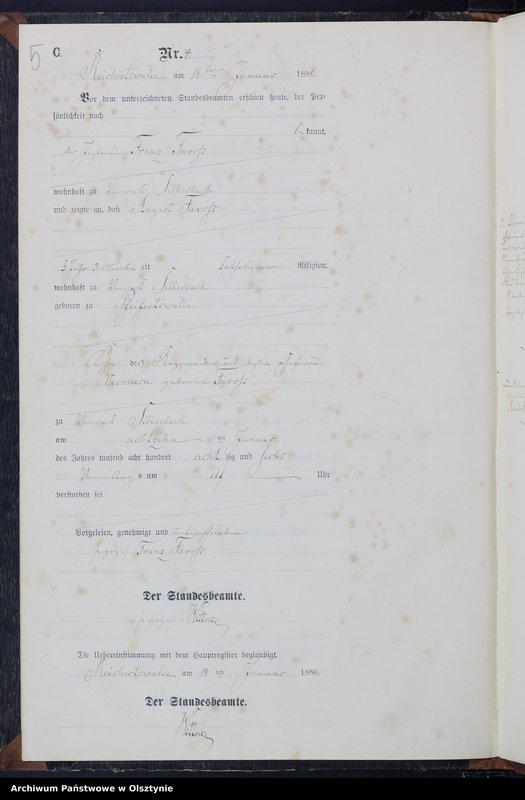 5
C.
Nr. 4
Reichertswalde am 18ten Januar 1886.
Vor dem unterzeichneten Standesbeamten erschien heute, der Per-
sönlichkeit nach
be kannt,
der Franz Taross
wohnhaft zu Vorwerk Silberbach
und zeigte an, daß August Taross
3 Monate alt katholischer Religion,
wohnhaft zu Vorwerk Silberbach
geboren zu
Sohn des Anzeigenden und dessen Ehefrau
Veronica geborene Taross
zu Vorwerk Silberbach
am achtzehn ten Januar
des Jahres tausend acht hundert achtzig und sechs
Vormittags um elf Uhr
verstorben sei
Vorgelesen, genehmigt und unterschrieben
(gegez.) Franz Taross
Der Standesbeamte.
(gegez.)
Die Uebereinstimmung mit dem Hauptregister beglaubigt.
Reichertswalde am 18 ten Januar 1886.
Der Standesbeamte.
Archiwum Państwowe w Olsztynie